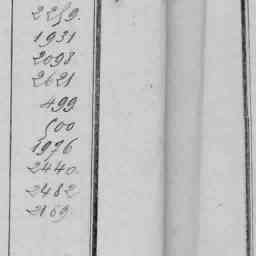 2259.
1931
2098
2621
499
500
1976
2440.
2482
2169